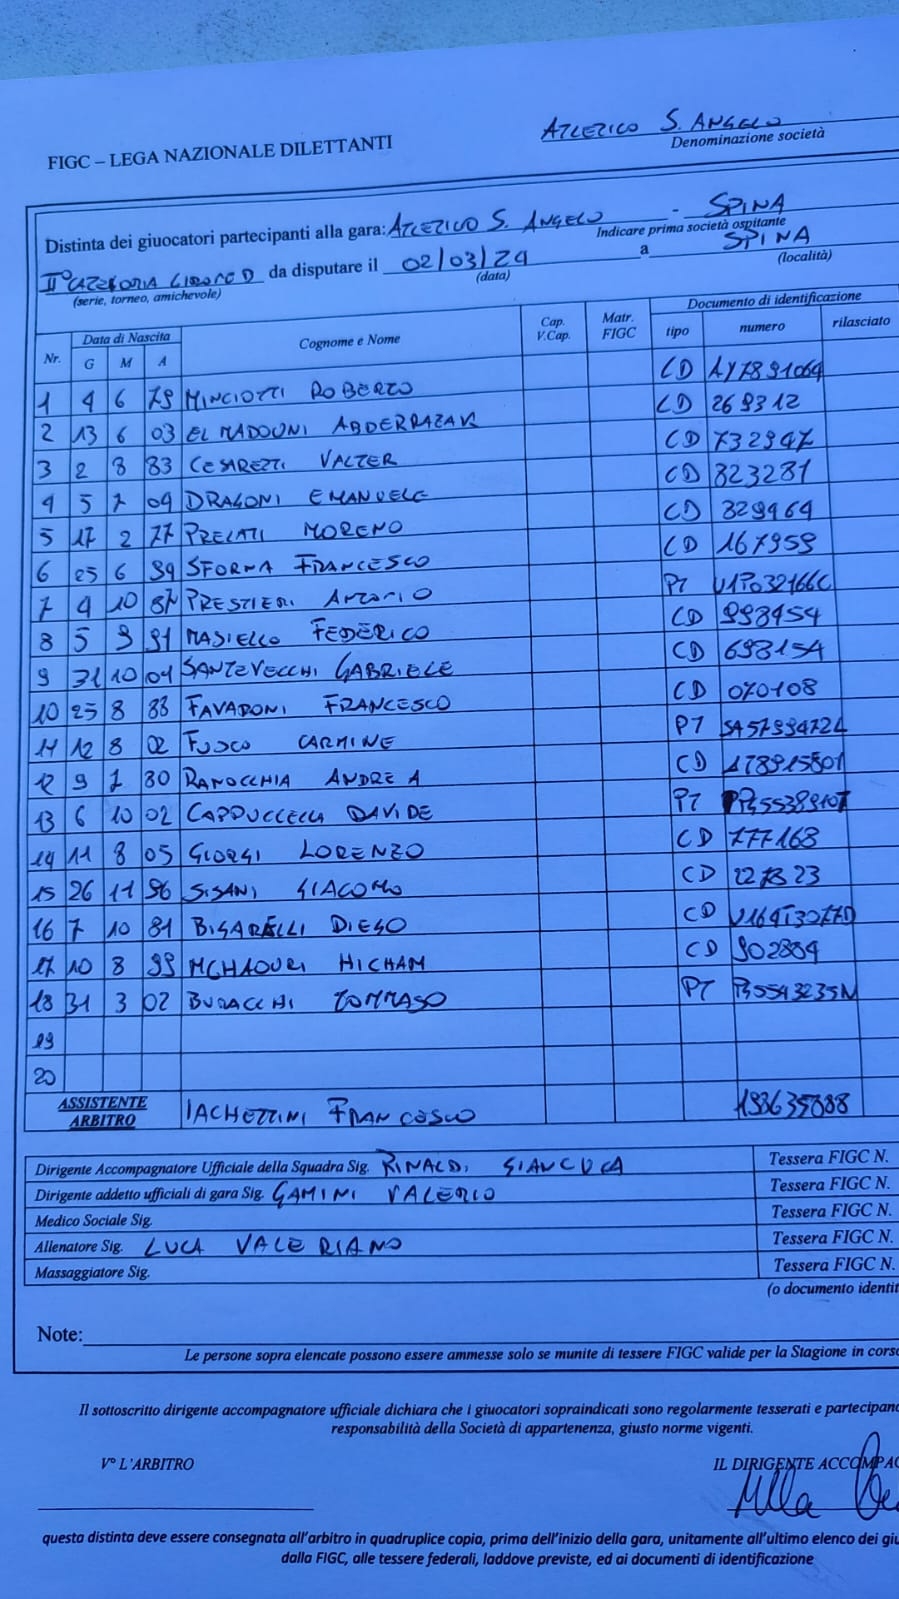 ATLETICO S. ANGELO
FIGC – LEGA NAZIONALE DILETTANTI
Denominazione società
Distinta dei giuocatori partecipanti alla gara: ATLETICO S. ANGELO - SPINA
Indicare prima società ospitante
II° CATEGORIA GIRONE D da disputare il 02/03/24 a SPINA
(serie, torneo, amichevole) (data) (località)
Nr. Data di Nascita Cognome e Nome Cap. V.Cap. Matr. FIGC Documento di identificazione
G M A tipo numero rilasciato
1 4 6 79 MINCIOTTI ROBERTO CD AY7891064
2 13 6 03 EL MADOUNI ABDERRAZAK CD 269312
3 2 8 83 CESARETTI VALTER CD 732947
4 5 7 04 DRAGONI EMANUELE CD 823281
5 17 2 77 PRELATI MORENO CD 329464
6 25 6 99 SFORNA FRANCESCO CD 167959
7 4 10 87 PRESTIERI ANTONIO PT U1P032166C
8 5 9 91 MASIELLO FEDERICO CD 993454
9 31 10 04 SANTEVECCHI GABRIELE CD 698154
10 25 8 88 FAVARONI FRANCESCO CD 070108
11 12 8 02 FUSCO CARMINE PT
12 9 7 80 RANOCCHIA ANDREA CD
13 6 10 02 CAPPUCCELLA DAVIDE PT
14 11 8 05 GIORGI LORENZO CD 777168
15 26 11 96 SISANI GIACOMO CD 227823
16 7 10 81 BIGARELLI DIEGO CD
17 10 8 99 MCHAOURI HICHAM CD 902884
18 31 3 02 BURACCHI TOMMASO PT
19
20
ASSISTENTE ARBITRO IACHETTINI FRANCESCO 193635888
Dirigente Accompagnatore Ufficiale della Squadra Sig. RINALDI GIANLUCA Tessera FIGC N.
Dirigente addetto ufficiali di gara Sig. GAMINI VALERIO Tessera FIGC N.
Medico Sociale Sig. Tessera FIGC N.
Allenatore Sig. LUCA VALERIANO Tessera FIGC N.
Massaggiatore Sig. Tessera FIGC N.
(o documento identit
Note:
Le persone sopra elencate possono essere ammesse solo se munite di tessere FIGC valide per la Stagione in cors
Il sottoscritto dirigente accompagnatore ufficiale dichiara che i giuocatori sopraindicati sono regolarmente tesserati e partecipano
responsabilità della Società di appartenenza, giusto norme vigenti.
V° L'ARBITRO IL DIRIGENTE ACCOMPAG
questa distinta deve essere consegnata all'arbitro in quadruplice copia, prima dell'inizio della gara, unitamente all'ultimo elenco dei giu
dalla FIGC, alle tessere federali, laddove previste, ed ai documenti di identificazione